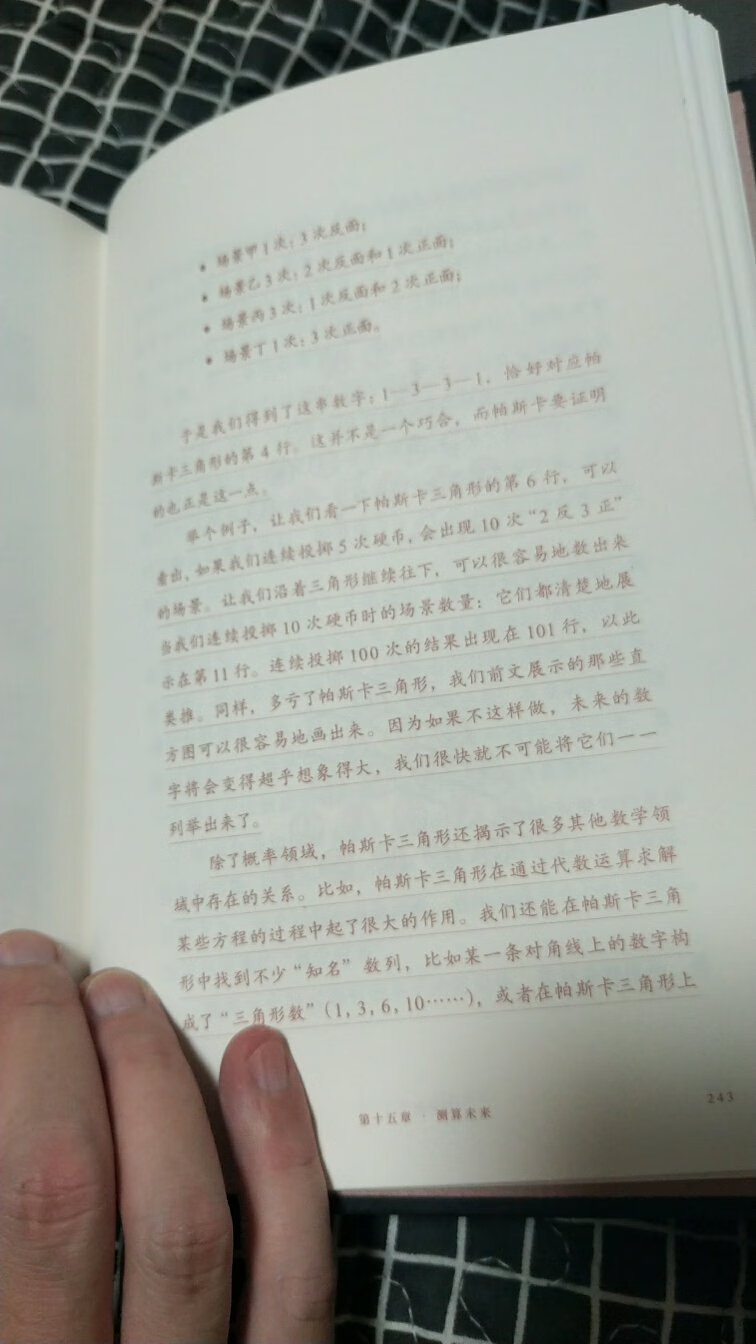 • 场景甲 1 次：3 次反面；
• 场景乙 3 次：2 次反面和 1 次正面；
• 场景丙 3 次：1 次反面和 2 次正面；
• 场景丁 1 次：3 次正面。
于是我们得到了这串数字：1—3—3—1，恰好对应帕
斯卡三角形的第 4 行。这并不是一个巧合，而帕斯卡要证明
的也正是这一点。
举个例子，让我们看一下帕斯卡三角形的第 6 行，可以
看出，如果我们连续投掷 5 次硬币，会出现 10 次“2 反 3 正”
的场景。让我们沿着三角形继续往下，可以很容易地数出来
当我们连续投掷 10 次硬币时的场景数量：它们都清楚地展
示在第 11 行。连续投掷 100 次的结果出现在 101 行，以此
类推。同样，多亏了帕斯卡三角形，我们前文展示的那些直
方图可以很容易地画出来。因为如果不这样做，未来的数
字将会变得超乎想象得大，我们很快就不可能将它们一一
列举出来了。
除了概率领域，帕斯卡三角形还揭示了很多其他数学领
域中存在的关系。比如，帕斯卡三角形在通过代数运算求解
某些方程的过程中起了很大的作用。我们还能在帕斯卡三角
形中找到不少“知名”数列，比如某一条对角线上的数字构
成了“三角形数”（1, 3, 6, 10……），或者在帕斯卡三角形上
第十五章 · 测算未来
243